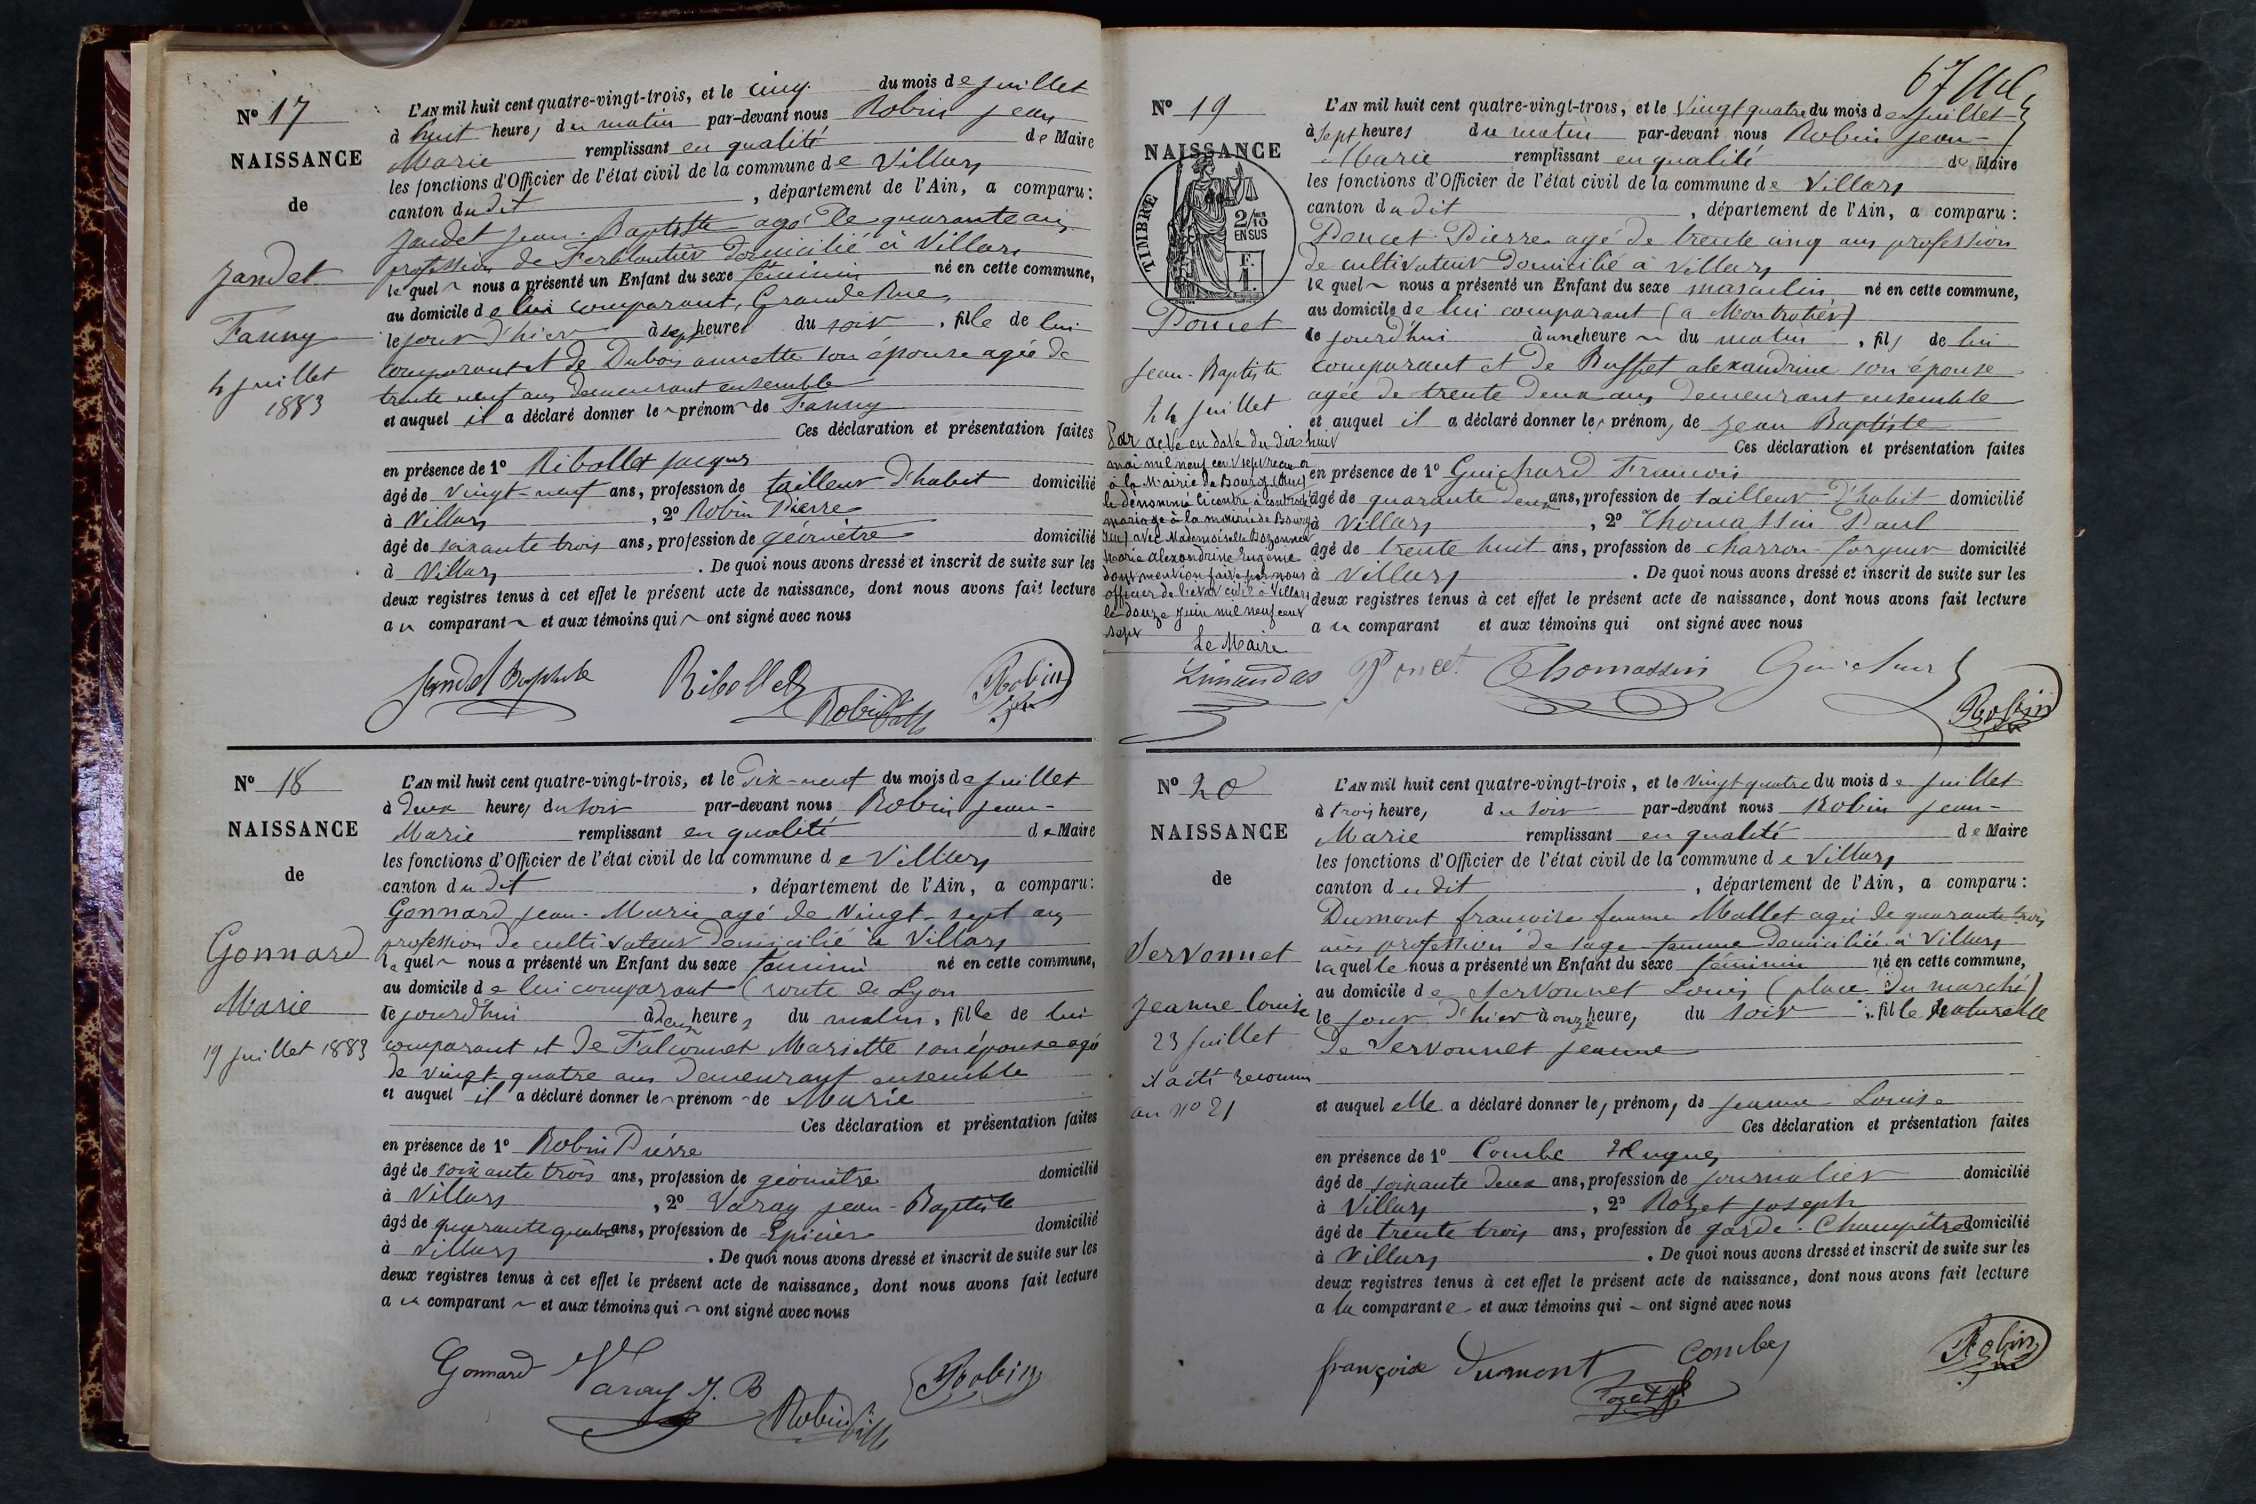 N° 17
NAISSANCE
de
Jandet
Fanny
4 juillet
1883
L'AN mil huit cent quatre-vingt-trois, et le cinq du mois de juillet
à huit heures du matin par-devant nous Robin Jean
Marie remplissant en qualité de Maire
les fonctions d'Officier de l'état civil de la commune de Villars
canton dudit , département de l'Ain, a comparu:
Jandet Jean-Baptiste agé de quarante ans
profession de Ferblantier domicilié à Villars
lequel nous a présenté un Enfant du sexe féminin né en cette commune,
au domicile de lui comparant, Grande Rue,
le jour d'hier à sept heures du soir , fille de lui
comparant et de Dubois annette son épouse agée de
trente neuf ans demeurant ensemble
et auquel il a déclaré donner le prénom de Fanny
Ces déclaration et présentation faites
en présence de 1° Ribollet Jacques
âgé de vingt-neuf ans, profession de tailleur d'habit domicilié
à Villars , 2° Robin Pierre
âgé de soixante trois ans, profession de géomètre domicilié
à Villars . De quoi nous avons dressé et inscrit de suite sur les
deux registres tenus à cet effet le présent acte de naissance, dont nous avons fait lecture
au comparant et aux témoins qui ont signé avec nous
Jandet Baptiste Ribollet Robin Robin
N° 18
NAISSANCE
de
Gonnard
Marie
19 juillet 1883
L'AN mil huit cent quatre-vingt-trois, et le Dix-neuf du mois de juillet
à deux heures du soir par-devant nous Robin Jean-
Marie remplissant en qualité de Maire
les fonctions d'Officier de l'état civil de la commune de Villars
canton dudit , département de l'Ain, a comparu:
Gonnard Jean-Marie agé de Vingt-sept ans
profession de cultivateur domicilié à Villars
lequel nous a présenté un Enfant du sexe féminin né en cette commune,
au domicile de lui comparant (route de Lyon
ce jourd'hui à deux heures du matin, fille de lui
comparant et de Falconnet Mariette son épouse agé
de vingt-quatre ans demeurant ensemble
et auquel il a déclaré donner le prénom de Marie
Ces déclaration et présentation faites
en présence de 1° Robin Pierre
âgé de soixante trois ans, profession de géomètre domicilié
à Villars , 2° Varay Jean-Baptiste
âgé de quarante quatre ans, profession de Epicier domicilié
à Villars . De quoi nous avons dressé et inscrit de suite sur les
deux registres tenus à cet effet le présent acte de naissance, dont nous avons fait lecture
au comparant et aux témoins qui ont signé avec nous
Gonnard Varay J. B Robin Robin
67
N° 19
NAISSANCE
TIMBRE
2/10 EN SUS
F. 1.
Poncet
Jean-Baptiste
24 juillet
Par acte en date du dix huit
mai mil neuf cent sept reçu
à la Mairie de Bourg (Ain)
le dénommé ci contre a contracté
mariage à la mairie de Bourg
(Ain) avec Mademoiselle Bozonnet
Marie Alexandrine Eugénie
dont mention faite par nous
officier de l'état civil à Villars
le douze juin mil neuf cent
sept
Le Maire
L'AN mil huit cent quatre-vingt-trois, et le Vingt quatre du mois de juillet
à sept heures du matin par-devant nous Robin Jean-
Marie remplissant en qualité de Maire
les fonctions d'Officier de l'état civil de la commune de Villars
canton dudit , département de l'Ain, a comparu:
Poncet Pierre agé de trente cinq ans profession
de cultivateur domicilié à Villars
lequel nous a présenté un Enfant du sexe masculin né en cette commune,
au domicile de lui comparant (a Montrotier)
ce jourd'hui à une heure du matin , fils de lui
comparant et de Buffet alexandrine son épouse
agée de trente deux ans, demeurant ensemble
et auquel il a déclaré donner les prénoms de Jean Baptiste
Ces déclaration et présentation faites
en présence de 1° Guichard Francois
âgé de quarante deux ans, profession de tailleur d'habit domicilié
à Villars , 2° Thomassin Paul
âgé de trente huit ans, profession de charron-forgeur domicilié
à Villars . De quoi nous avons dressé et inscrit de suite sur les
deux registres tenus à cet effet le présent acte de naissance, dont nous avons fait lecture
au comparant et aux témoins qui ont signé avec nous
Limandas Poncet Thomassin Guichard Robin
N° 20
NAISSANCE
de
Servonnet
Jeanne Louise
23 juillet
a été reconnu
au N° 21
L'AN mil huit cent quatre-vingt-trois, et le Vingt quatre du mois de juillet
à trois heures, du soir par-devant nous Robin Jean-
Marie remplissant en qualité de Maire
les fonctions d'Officier de l'état civil de la commune de Villars
canton dudit , département de l'Ain, a comparu:
Dumont francoise femme Mallet agée de quarante trois
ans profession de sage-femme domiciliée à Villars
laquelle nous a présenté un Enfant du sexe féminin né en cette commune,
au domicile de Servonnet Louis (place du marché)
le jour d'hier à onze heures, du soir , fille naturelle
de Servonnet Jeanne
et auquel elle a déclaré donner les prénoms de Jeanne Louise
Ces déclaration et présentation faites
en présence de 1° Combe Hugues
âgé de soixante deux ans, profession de journalier domicilié
à Villars , 2° Rozet Joseph
âgé de trente trois ans, profession de garde-Champêtre domicilié
à Villars . De quoi nous avons dressé et inscrit de suite sur les
deux registres tenus à cet effet le présent acte de naissance, dont nous avons fait lecture
a la comparante et aux témoins qui ont signé avec nous
françoise Dumont Combes Rozet Robin